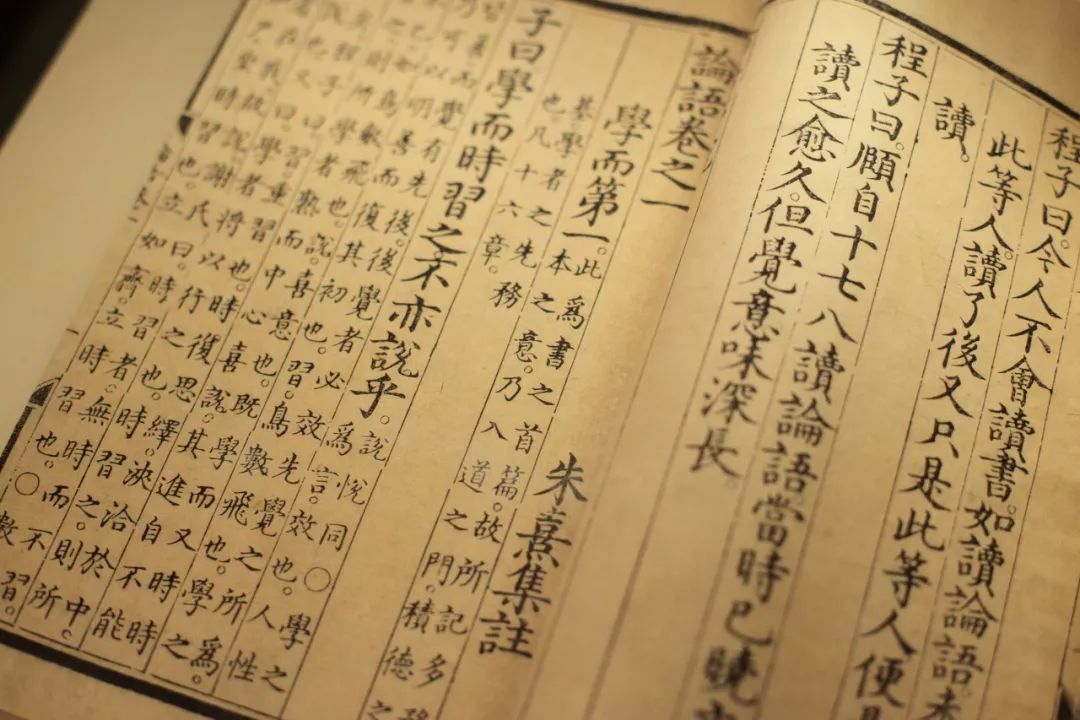 程子曰今人不會讀書。如讀論語未
此等人。讀了後又只是此等人便
讀。
程子曰。頤自十七八讀論語當時已曉
讀之愈久。但覺意味深長。
論語卷之一 朱熹集註
學而第一。此為書之首篇。故所記多
務本之意。乃入道之門。積德之
基學者之先務
也凡十六章。
子曰學而時習之不亦說乎。說悅同○學之
為言效也。人性
皆善。而覺有先後。後覺者必效先覺之所為。
乃可以明善而復其初也。習。鳥數飛也。學之
已。如鳥數飛也。說。喜意也。既學而又時時
則所學者熟。而中心喜說。其進自不能
程子曰。習。重習也。時復思繹。浹洽於中。
也。又曰。學者。將以行之也。時習之。則所
在我。故說。謝氏曰。時習者。無時而不習。
尸。坐時習也。立如齊。立時習也。○